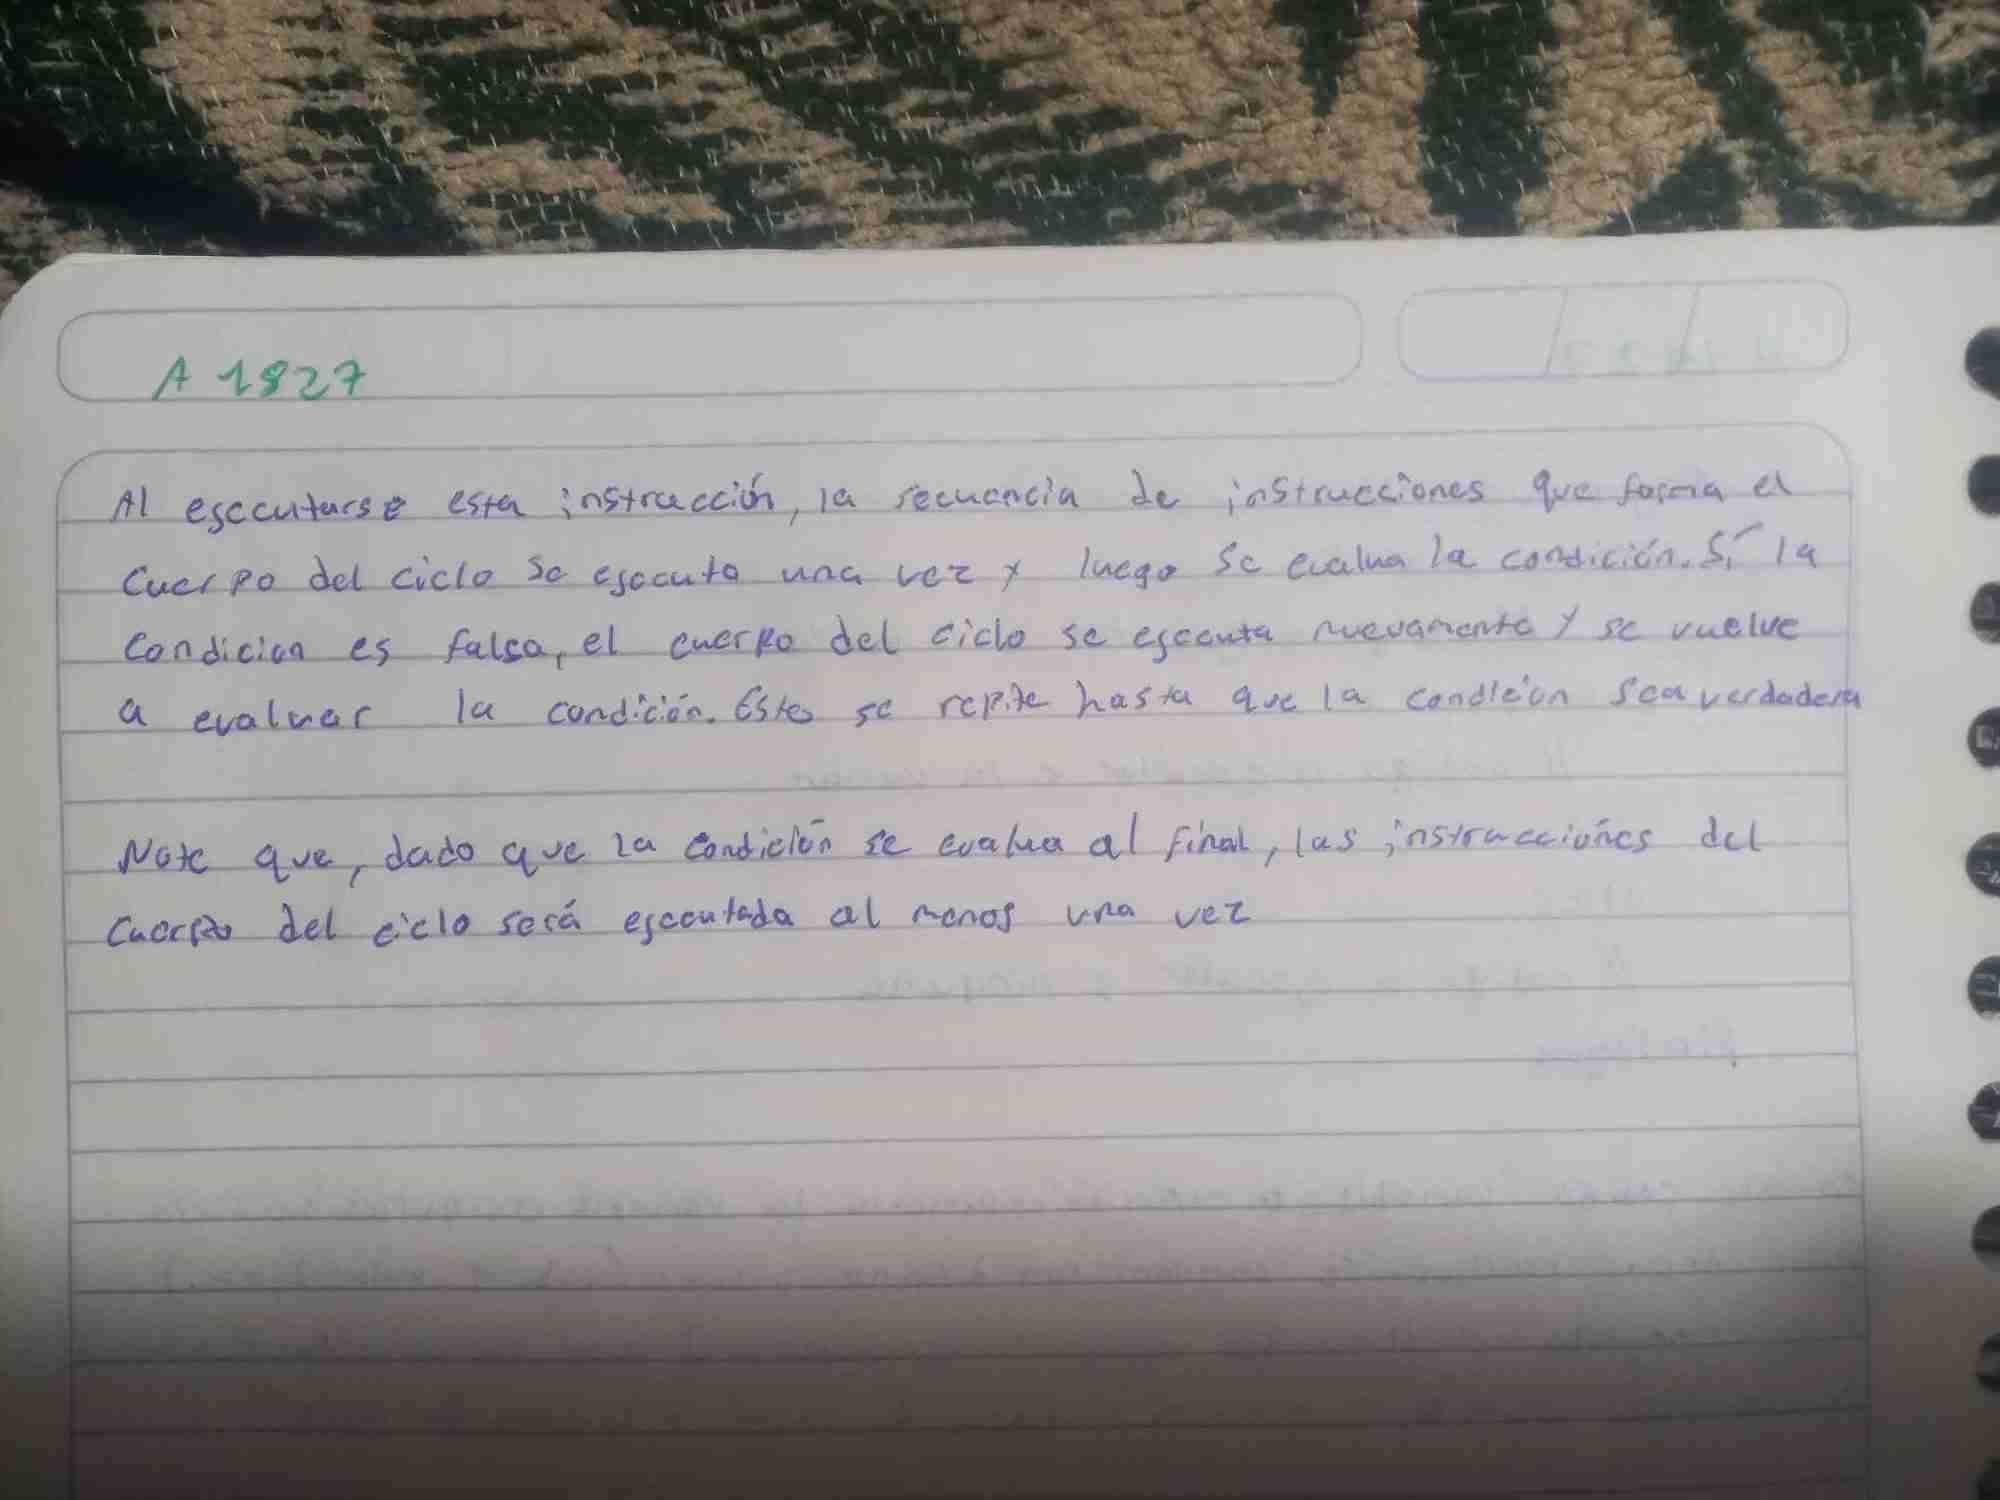 A 1827
Al esecutarse esta instrucción, la secuencia de instrucciones que forma el
Cuerpo del ciclo se esecuta una vez y luego se evalua la condición. Sí la
Condicion es falsa, el cuerpo del ciclo se esecuta nuevamente y se vuelve
a evaluar la condición. Esto se repite hasta que la condición sea verdadera
Note que, dado que la condición se evalua al final, las instrucciones del
Cuerpo del ciclo será esecutada al menos una vez